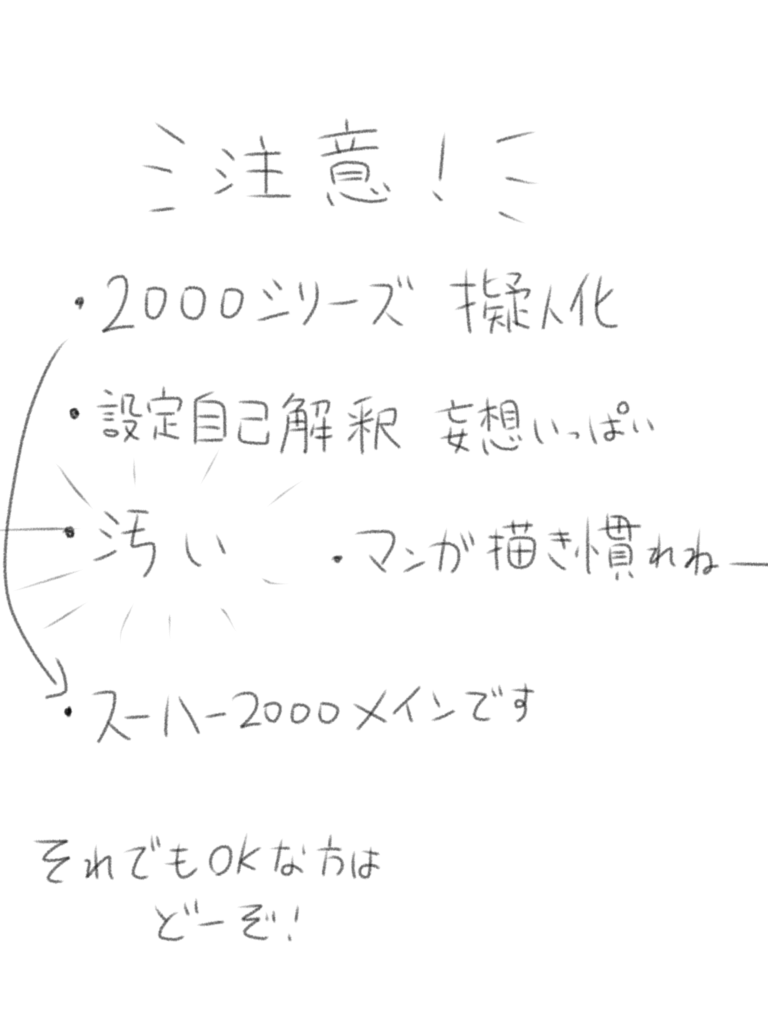 注意！
・2000シリーズ 擬人化
・設定自己解釈 妄想いっぱい
・汚い ・マンガ描き慣れねー
・スーハー2000メインです
それでもOKな方は
どーぞ！